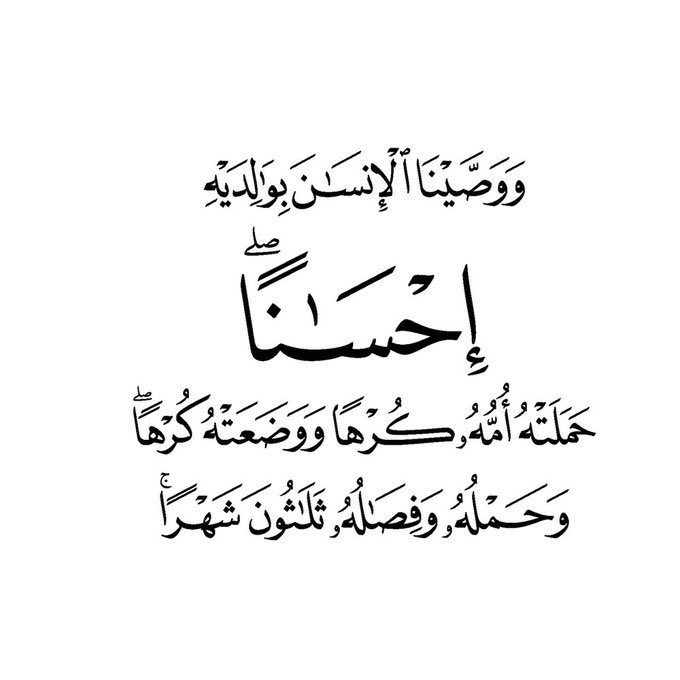 وَوَصَّيْنَا ٱلْإِنسَـٰنَ بِوَٰلِدَيْهِ
إِحْسَـٰنًاۖ
حَمَلَتْهُ أُمُّهُۥ كُرْهًا وَوَضَعَتْهُ كُرْهًاۖ
وَحَمْلُهُۥ وَفِصَـٰلُهُۥ ثَلَـٰثُونَ شَهْرًاۚ